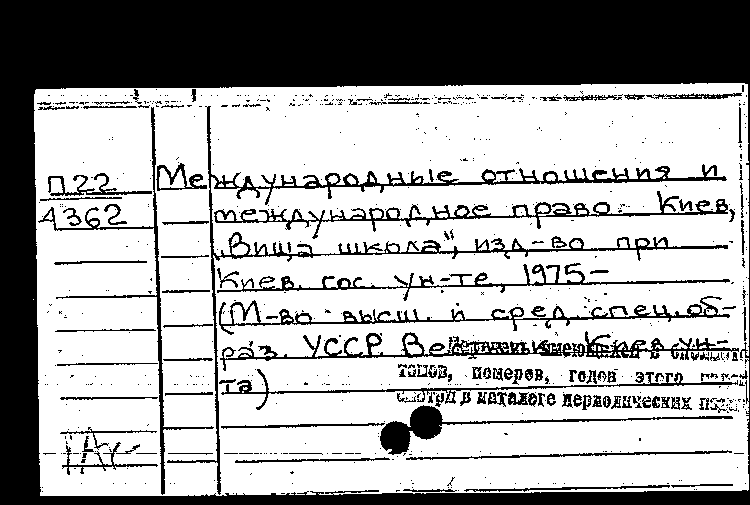 П22 Международные отношения и
4362 международное право. Киев,
„Вища школа", изд-во при
Киев. гос. ун-те, 1975–
(М-во высш. и сред. спец. об-
раз. УССР. Вестник Киев. ун-
та)
имеющихся в
томов, номеров, годов этого
смотри в каталоге периодических